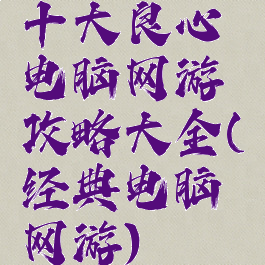 十大良心
电脑网游
攻略大全(
经典电脑
网游)